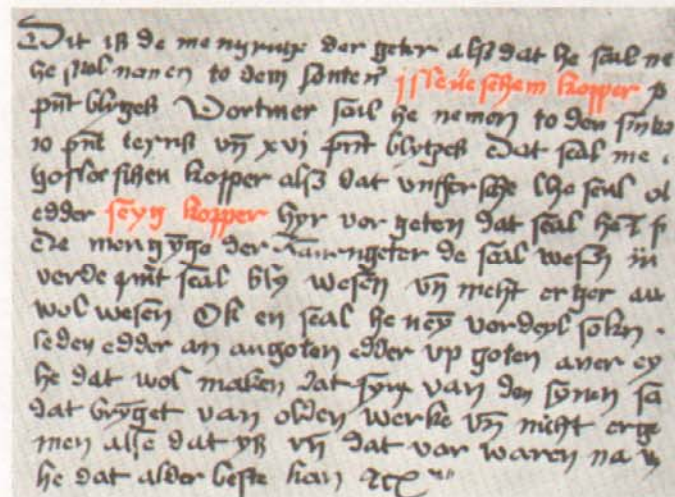 Dit iß de menginge der geter alß dat he sal ne
he wol nanen to dem sonten isleueschem kopper
pnt blyges Vortmer sall he nemen to den
pnt teyns vn xvj pnt blyges Dat scal me
gosloeschen kopper alß dat vnser sche lhe scal ol
edder seyn kopper hyr vor geten dat scal he
De mengyge der geter de scal wesen iii
verde pnt scal bly wesen vn nicht erger
wol wesen Ok en scal he ney vordeyl soken
leden edder an angoten edder vp goten aner ey
he dat wol maken dat syn van den synen sa
dat bryget van olden werke vn nicht erge
men alse dat yß vn dat vor waren na
he dat alder beste kan